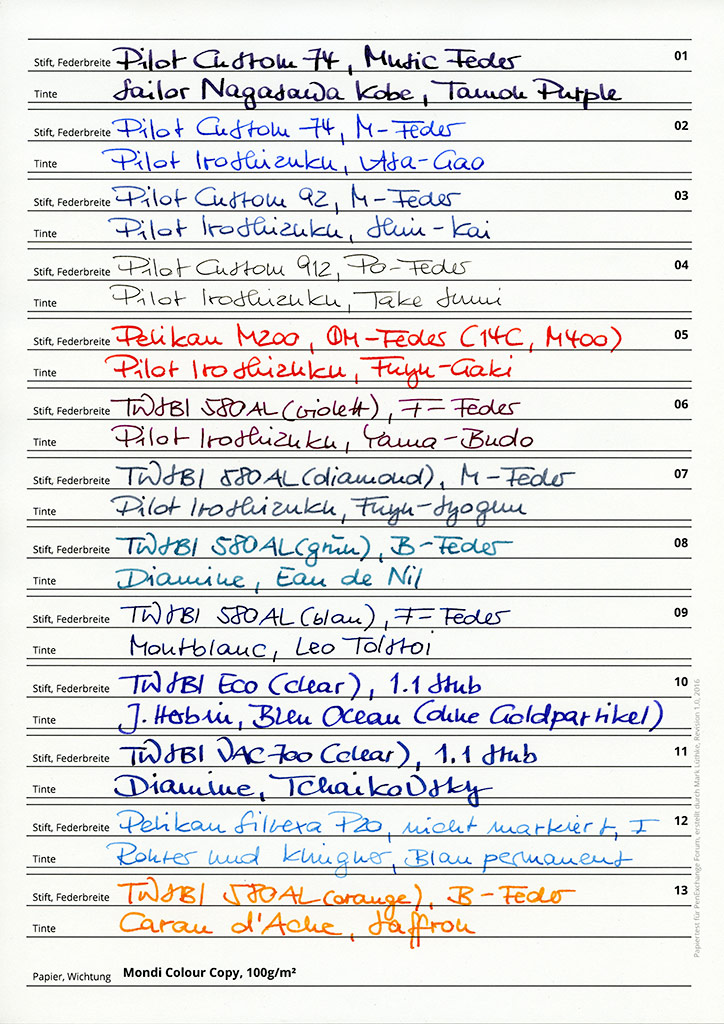 Stift, Federbreite Pilot Custom 74, Music Feder 01
Tinte Sailor Nagasawa Kobe, Tamon Purple
Stift, Federbreite Pilot Custom 74, M-Feder 02
Tinte Pilot Iroshizuku, Asa-Gao
Stift, Federbreite Pilot Custom 92, M-Feder 03
Tinte Pilot Iroshizuku, Shin-Kai
Stift, Federbreite Pilot Custom 912, Po-Feder 04
Tinte Pilot Iroshizuku, Take Sumi
Stift, Federbreite Pelikan M200, OM-Feder (14C, M400) 05
Tinte Pilot Iroshizuku, Fuyu-Gaki
Stift, Federbreite TWSBI 580AL(violett), F-Feder 06
Tinte Pilot Iroshizuku, Yama-Budo
Stift, Federbreite TWSBI 580AL(diamond), M-Feder 07
Tinte Pilot Iroshizuku, Fuyu-Syogun
Stift, Federbreite TWSBI 580AL(grün), B-Feder 08
Tinte Diamine, Eau de Nil
Stift, Federbreite TWSBI 580AL(blau), F-Feder 09
Tinte Montblanc, Leo Tolstoi
Stift, Federbreite TWSBI Eco (clear), 1.1 Stub 10
Tinte J. Herbin, Bleu Ocean (ohne Goldpartikel)
Stift, Federbreite TWSBI VAC 700 (clear), 1.1 Stub 11
Tinte Diamine, Tchaikovsky
Stift, Federbreite Pelikan Silvexa P20, nicht markiert, F 12
Tinte Rohrer und Klingner, Blau permanent
Stift, Federbreite TWSBI 580AL(orange), B-Feder 13
Tinte Caran d'Ache, Saffron
Papier, Wichtung Mondi Colour Copy, 100g/m²
Papiertest für PenExchange Forum, erstellt durch Mark Lüthke, Revision 1.0, 2016